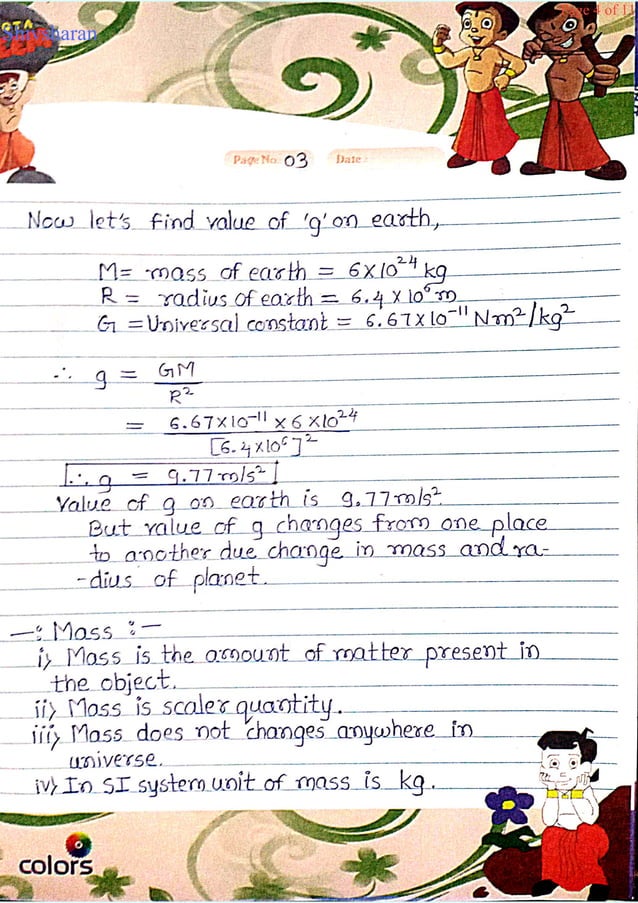 Shivsharan
Page 4 of 11
Page No: 03 Date:
Now let's find value of 'g' on earth,
M = mass of earth = 6×10²⁴ kg
R = radius of earth = 6.4 × 10⁶ m
G = Universal constant = 6.67×10⁻¹¹ Nm²/kg²
∴ g = GM / R²
= 6.67×10⁻¹¹ × 6×10²⁴ / [6.4×10⁶]²
∴ g = 9.77 m/s²
Value of g on earth is 9.77 m/s².
But value of g changes from one place
to another due change in mass and ra-
-dius of planet.
—: Mass :—
i) Mass is the amount of matter present in
the object.
ii) Mass is scaler quantity.
iii) Mass does not changes anywhere in
universe.
iv) In SI system unit of mass is kg.
colors